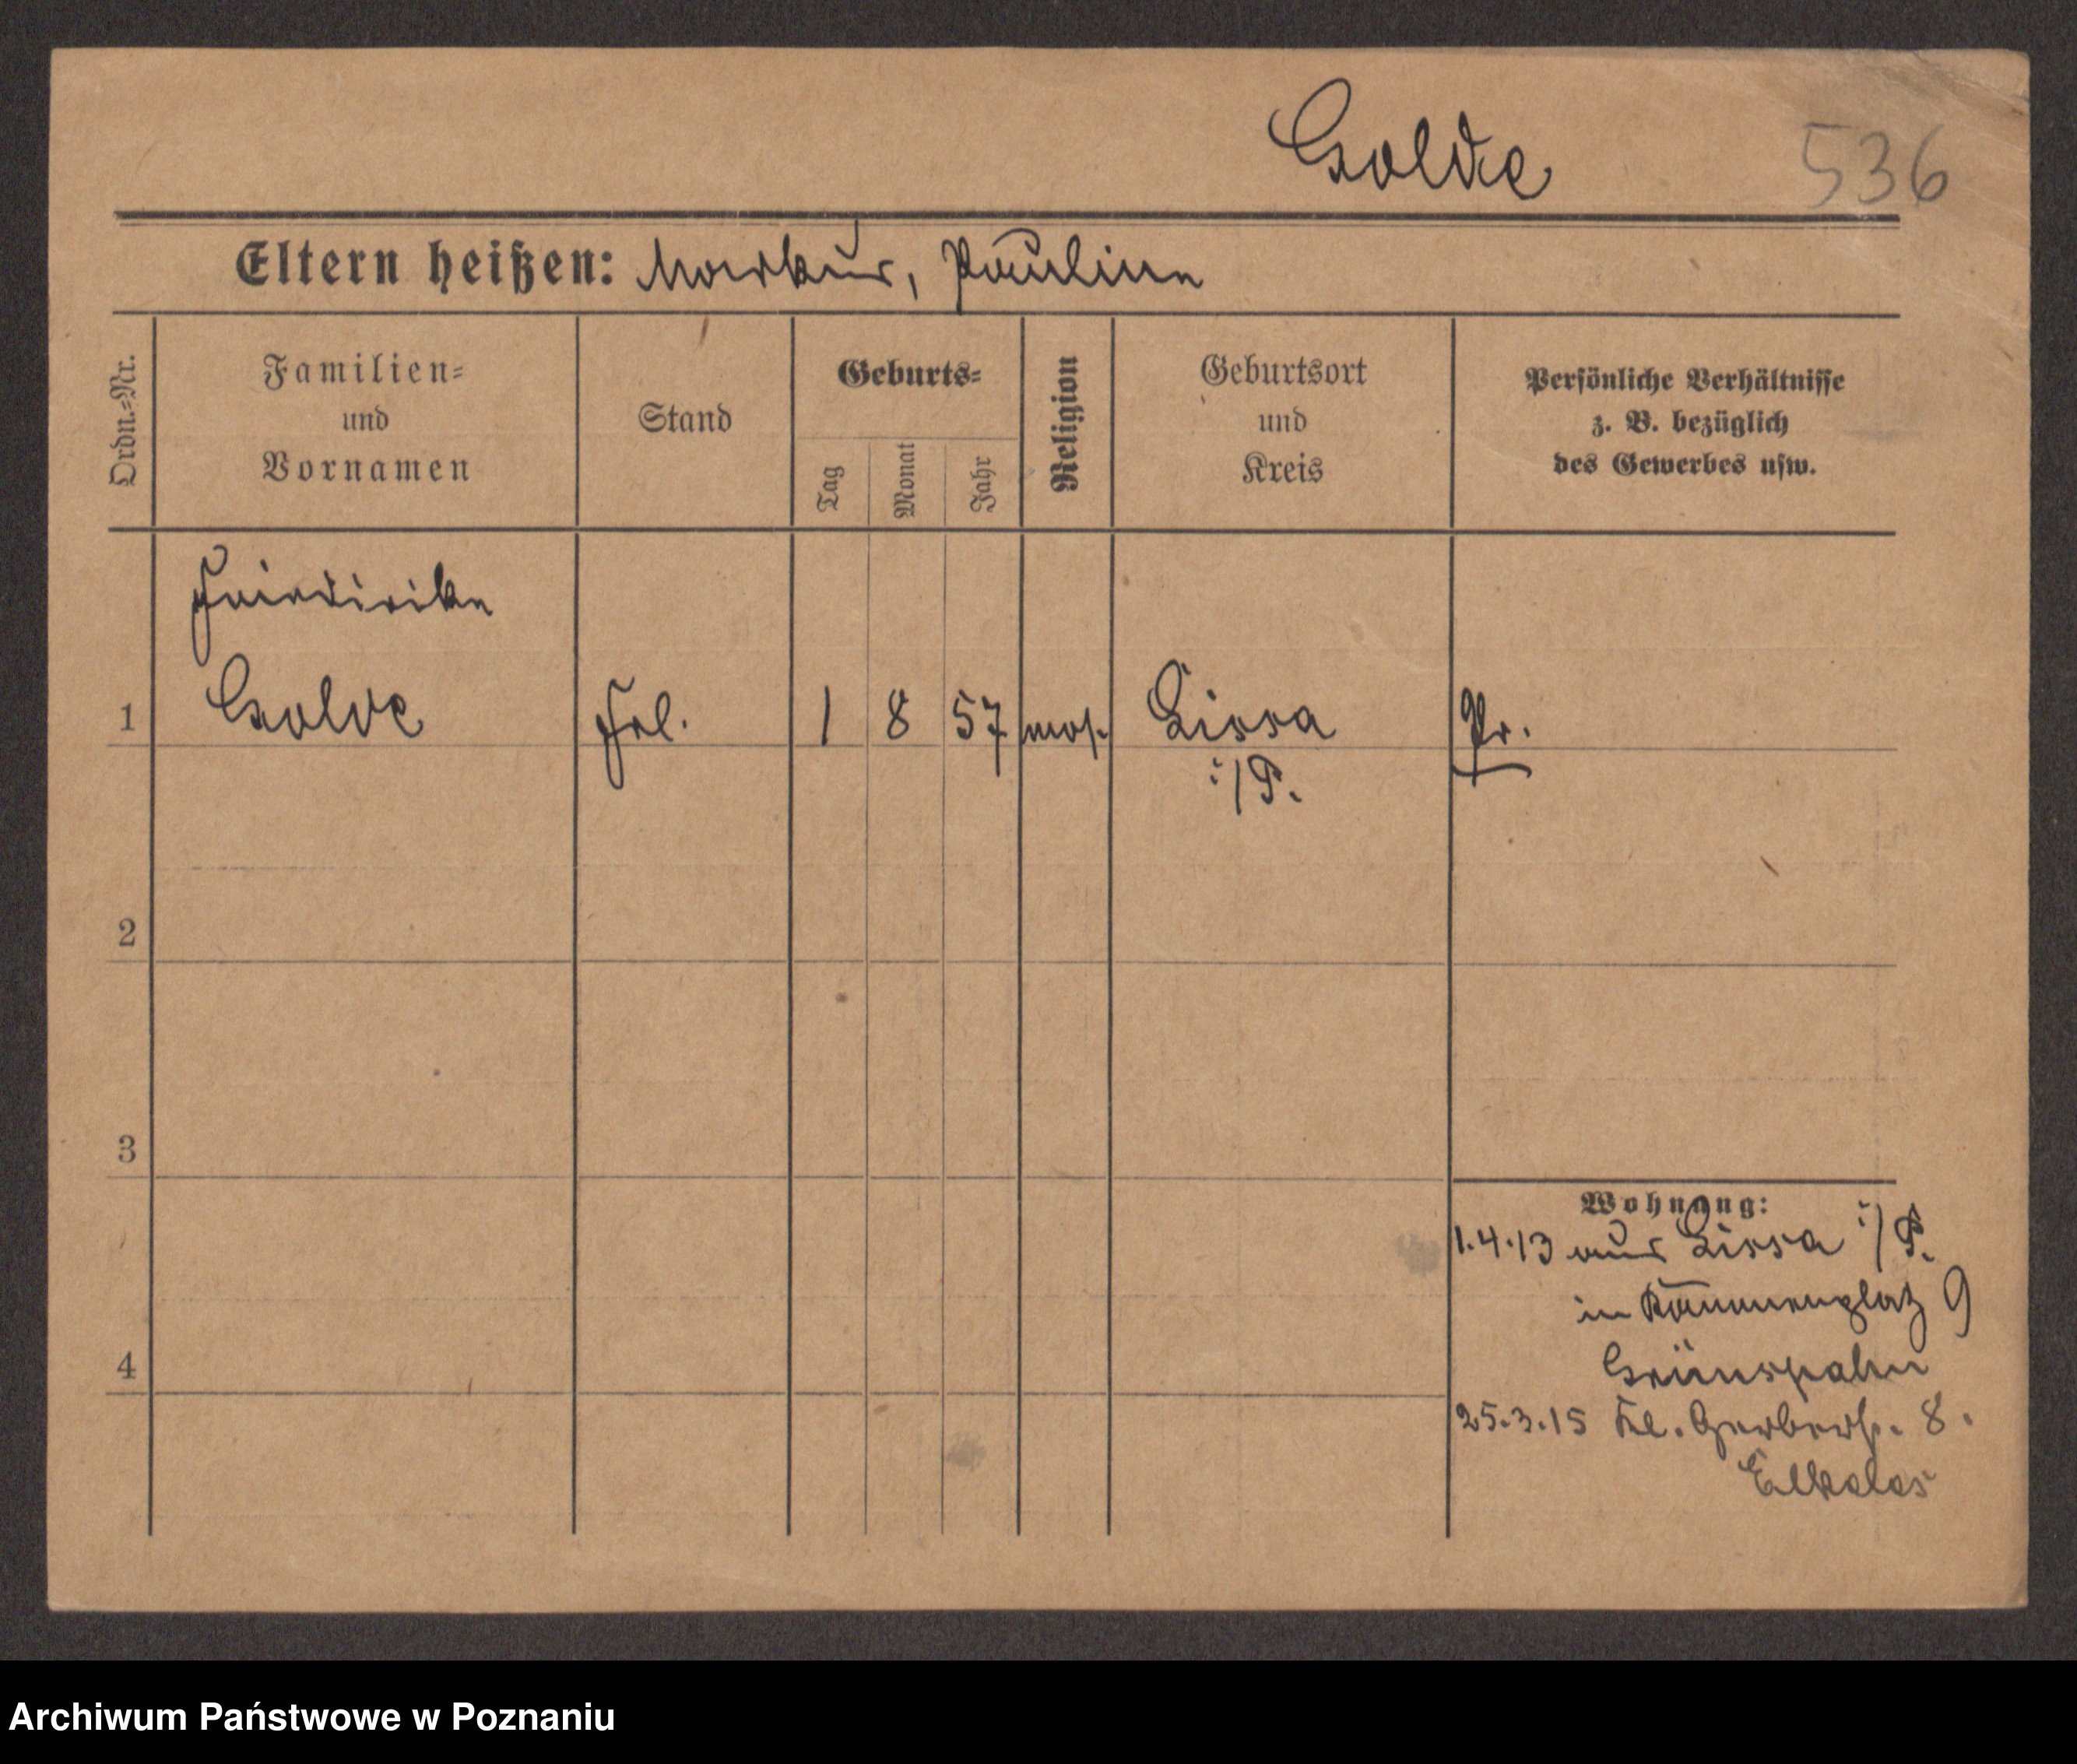 Golde 536
Eltern heißen: Markus, Pauline
Ordn.=Nr.
Familien=
und
Vornamen
Stand
Geburts=
Tag
Monat
Jahr
Religion
Geburtsort
und
Kreis
Persönliche Verhältnisse
z. B. bezüglich
des Gewerbes usw.
Friederike
1 Golde Frl. 1 8 57 mos. Lissa Pr.
i/P.
2
3
Wohnung:
1.4.13 aus Lissa i/P.
in 9
4
Grünspahn
25.3.15 Kl. Gerberstr. 8.
Elkeles
Archiwum Państwowe w Poznaniu